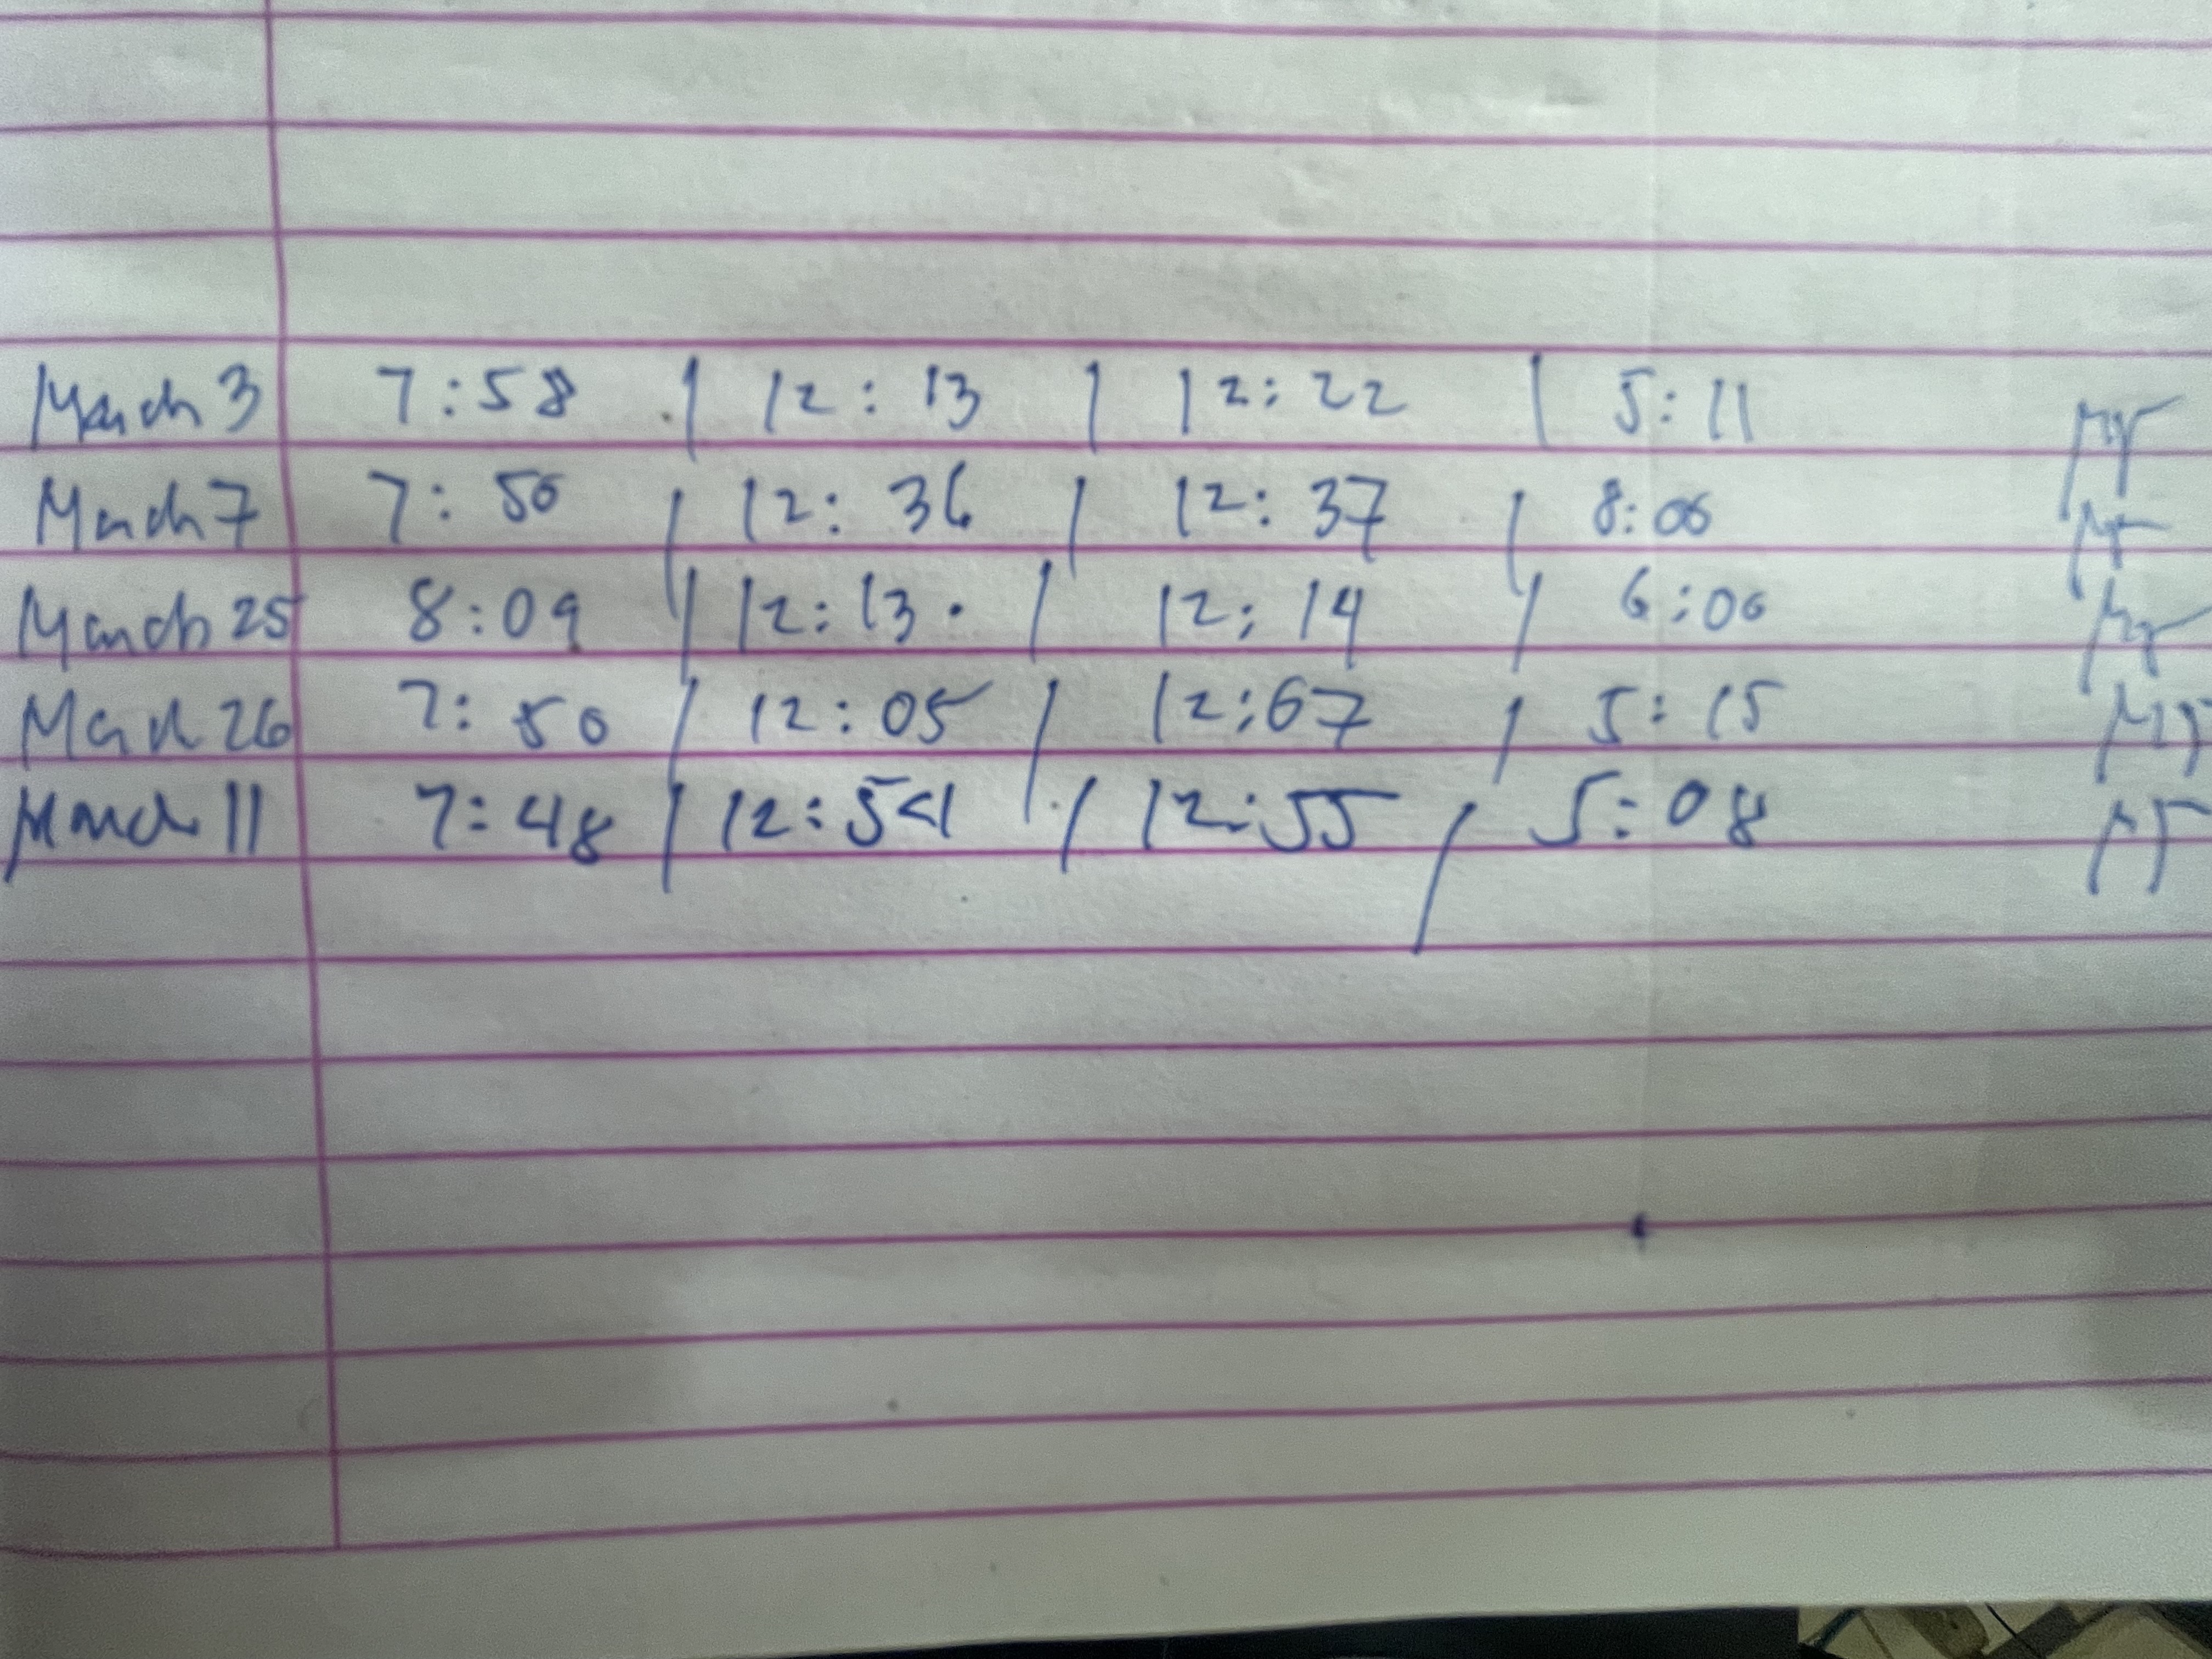 March 3 7:58 | 12:13 | 12:22 | 5:11
March 7 7:50 | 12:36 | 12:37 | 8:06
March 25 8:09 | 12:13 | 12:14 | 6:00
March 26 7:50 / 12:05 / 12:07 / 5:15
March 11 7:48 / 12:54 / 12:55 / 5:08